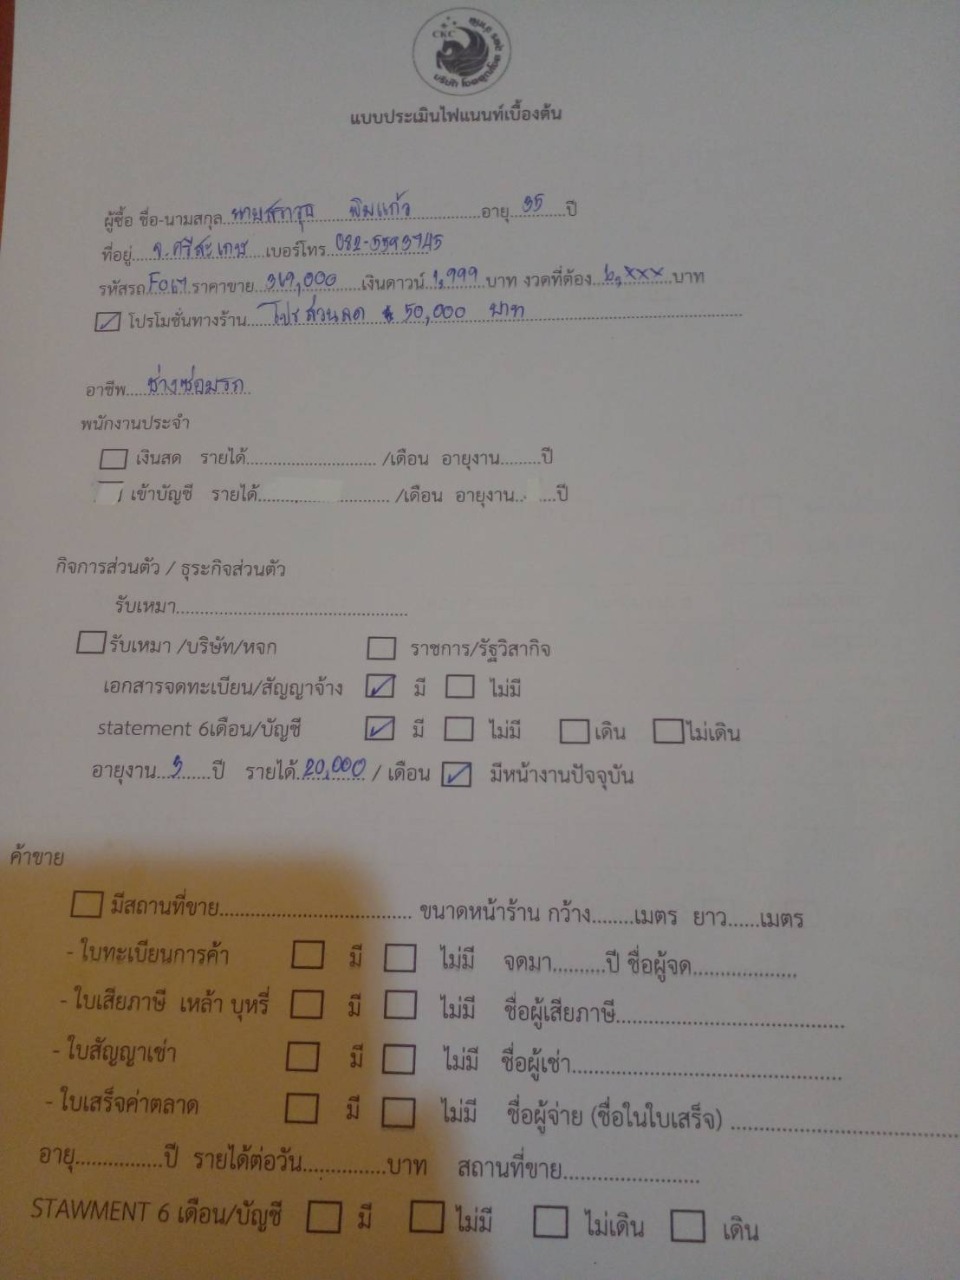 CKC
แบบประเมินไฟแนนท์เบื้องต้น
ผู้ซื้อ ชื่อ-นามสกุล พิมแก้ว อายุ 35 ปี
ที่อยู่ จ.ศรีสะเกษ เบอร์โทร 082-5593745
รหัสรถ ราคาขาย 369,000 เงินดาวน์ 1,999 บาท งวดที่ต้อง 6,xxx บาท
โปรโมชั่นทางร้าน โปรส่วนลด 50,000 บาท
อาชีพ ช่างซ่อมรถ
พนักงานประจำ
เงินสด รายได้ /เดือน อายุงาน ปี
เข้าบัญชี รายได้ /เดือน อายุงาน ปี
กิจการส่วนตัว / ธุระกิจส่วนตัว
รับเหมา
รับเหมา /บริษัท/หจก ราชการ/รัฐวิสากิจ
เอกสารจดทะเบียน/สัญญาจ้าง มี ไม่มี
statement 6เดือน/บัญชี มี ไม่มี เดิน ไม่เดิน
อายุงาน 3 ปี รายได้ 20,000 / เดือน มีหน้างานปัจจุบัน
ค้าขาย
มีสถานที่ขาย ขนาดหน้าร้าน กว้าง เมตร ยาว เมตร
- ใบทะเบียนการค้า มี ไม่มี จดมา ปี ชื่อผู้จด
- ใบเสียภาษี เหล้า บุหรี่ มี ไม่มี ชื่อผู้เสียภาษี
- ใบสัญญาเช่า มี ไม่มี ชื่อผู้เช่า
- ใบเสร็จค่าตลาด มี ไม่มี ชื่อผู้จ่าย (ชื่อในใบเสร็จ)
อายุ ปี รายได้ต่อวัน บาท สถานที่ขาย
STAWMENT 6 เดือน/บัญชี มี ไม่มี ไม่เดิน เดิน